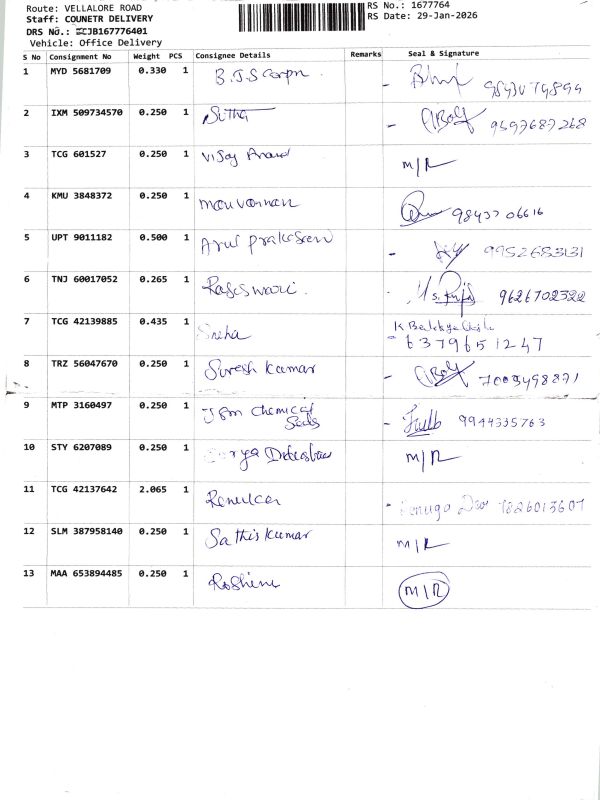 Route: VELLALORE ROAD
Staff: COUNETR DELIVERY
DRS No.: CJB167776401
Vehicle: Office Delivery
RS No.: 1677764
RS Date: 29-Jan-2026
S No Consignment No Weight PCS Consignee Details Remarks Seal & Signature
1 MYD 5681709 0.330 1 B.J.S Corpn
2 IXM 509734570 0.250 1 9597687268
3 TCG 601527 0.250 1 Vijay Anand M/R
4 KMU 3848372 0.250 1 Manvannan 9843706616
5 UPT 9011182 0.500 1 Arul prakasam 9952683131
6 TNJ 60017052 0.265 1 Rajeswari. 9626702322
7 TCG 42139885 0.435 1 Sneha 6379651247
8 TRZ 56047670 0.250 1 Suresh Kumar 7005498871
9 MTP 3160497 0.250 1 Chemical 9944335763
10 STY 6207089 0.250 1 M/R
11 TCG 42137642 2.065 1
12 SLM 387958140 0.250 1 Sathiskumar M/R
13 MAA 653894485 0.250 1 Roshini M/R